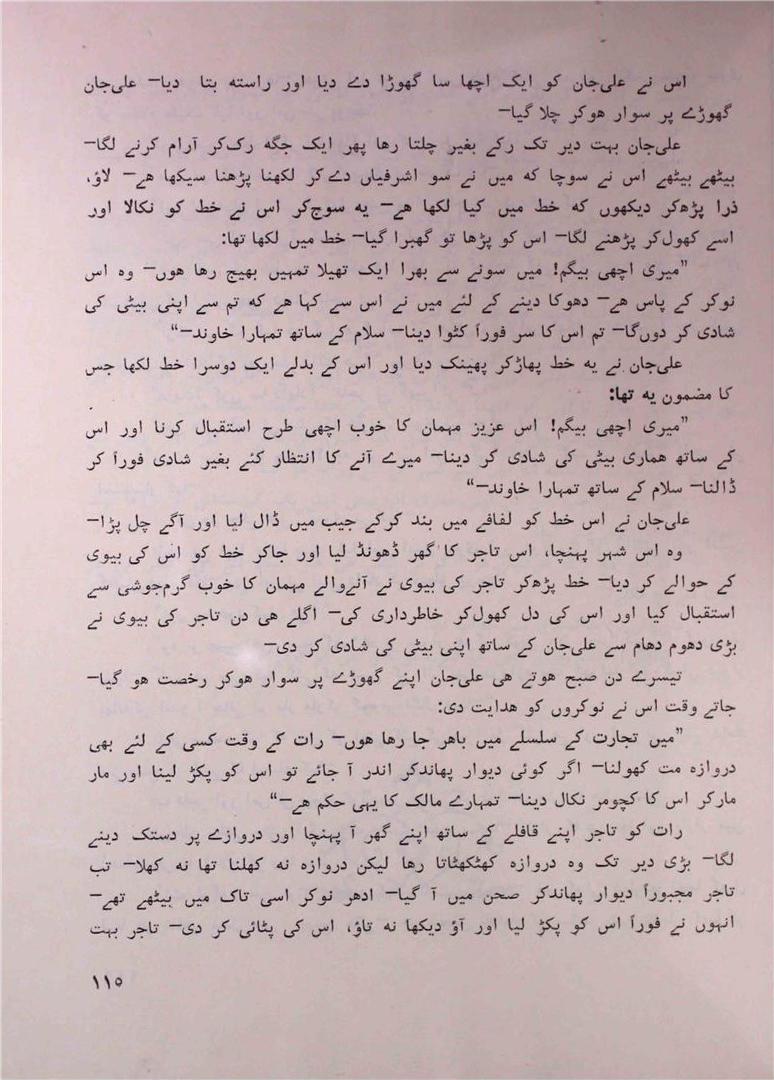 اس نے علی‌جان کو ایک اچھا سا گھوڑا دے دیا اور راستہ بتا دیا— علی‌جان
گھوڑے پر سوار ھوکر چلا گیا—
علی‌جان بہت دیر تک رکے بغیر چلتا رھا پھر ایک جگہ رک‌کر آرام کرنے لگا—
بیٹھے بیٹھے اس نے سوچا کہ میں نے سو اشرفیاں دےکر لکھنا پڑھنا سیکھا ھے— لاؤ،
ذرا پڑھ‌کر دیکھوں کہ خط میں کیا لکھا ھے— یہ سوچ‌کر اس نے خط کو نکالا اور
اسے کھول‌کر پڑھنے لگا— اس کو پڑھا تو گھبرا گیا— خط میں لکھا تھا:
”میری اچھی بیگم! میں سونے سے بھرا ایک تھیلا تمہیں بھیج رھا ھوں— وہ اس
نوکر کے پاس ھے— دھوکا دینے کے لئے میں نے اس سے کہا ھے کہ تم سے اپنی بیٹی کی
شادی کر دوں‌گا— تم اس کا سر فوراً کٹوا دینا— سلام کے ساتھ تمہارا خاوند—“
علی‌جان نے یہ خط پھاڑکر پھینک دیا اور اس کے بدلے ایک دوسرا خط لکھا جس
کا مضمون یہ تھا:
”میری اچھی بیگم! اس عزیز مہمان کا خوب اچھی طرح استقبال کرنا اور اس
کے ساتھ ھماری بیٹی کی شادی کر دینا— میرے آنے کا انتظار کئے بغیر شادی فوراً کر
ڈالنا— سلام کے ساتھ تمہارا خاوند—“
علی‌جان نے اس خط کو لفافے میں بند کرکے جیب میں ڈال لیا اور آگے چل پڑا—
وہ اس شہر پہنچا، اس تاجر کا گھر ڈھونڈ لیا اور جاکر خط کو اس کی بیوی
کے حوالے کر دیا— خط پڑھ‌کر تاجر کی بیوی نے آنےوالے مہمان کا خوب گرم‌جوشی سے
استقبال کیا اور اس کی دل کھول‌کر خاطرداری کی— اگلے ھی دن تاجر کی بیوی نے
بڑی دھوم دھام سے علی‌جان کے ساتھ اپنی بیٹی کی شادی کر دی—
تیسرے دن صبح ھوتے ھی علی‌جان اپنے گھوڑے پر سوار ھوکر رخصت ھو گیا—
جاتے وقت اس نے نوکروں کو ھدایت دی:
”میں تجارت کے سلسلے میں باھر جا رھا ھوں— رات کے وقت کسی کے لئے بھی
دروازہ مت کھولنا— اگر کوئی دیوار پھاندکر اندر آ جائے تو اس کو پکڑ لینا اور مار
مارکر اس کا کچومر نکال دینا— تمہارے مالک کا یہی حکم ھے—“
رات کو تاجر اپنے قافلے کے ساتھ اپنے گھر آ پہنچا اور دروازے پر دستک دینے
لگا— بڑی دیر تک وہ دروازہ کھٹکھٹاتا رھا لیکن دروازہ نہ کھلنا تھا نہ کھلا— تب
تاجر مجبوراً دیوار پھاندکر صحن میں آ گیا— ادھر نوکر اسی تاک میں بیٹھے تھے—
انہوں نے فوراً اس کو پکڑ لیا اور آؤ دیکھا نہ تاؤ، اس کی پٹائی کر دی— تاجر بہت
۱۱۵